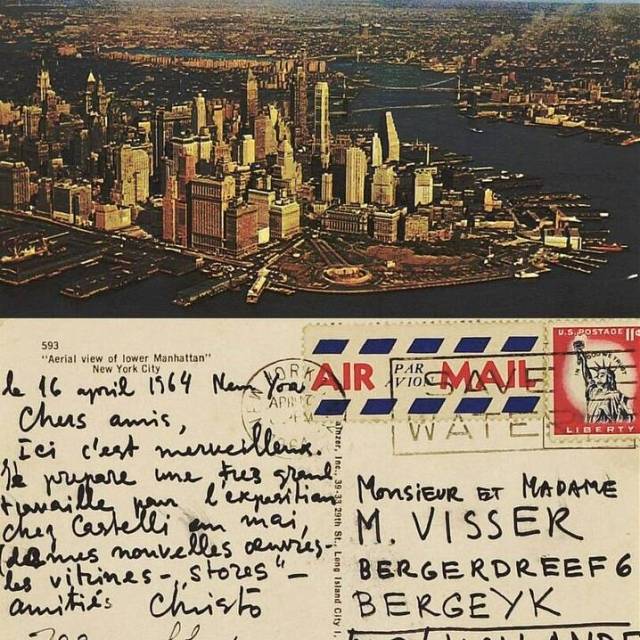 593
"Aerial view of lower Manhattan"
New York City
le 16 april 1964 New York
Chers amis,
Ici c'est merveilleux.
Je prepare une tres grand
travaille pour l'exposition
chez Castelli en mai,
de mes nouvelles œuvres-
les vitrines - „stores" -
amitiés Christo
AIR PAR AVION MAIL
U.S. POSTAGE 11¢
LIBERTY
NEW YORK
APR 17
SAVE
WATER
Inc., 39-33 29th St., Long Island City
MONSIEUR ET MADAME
M. VISSER
BERGERDREEF 6
BERGEYK
HOLLANDE